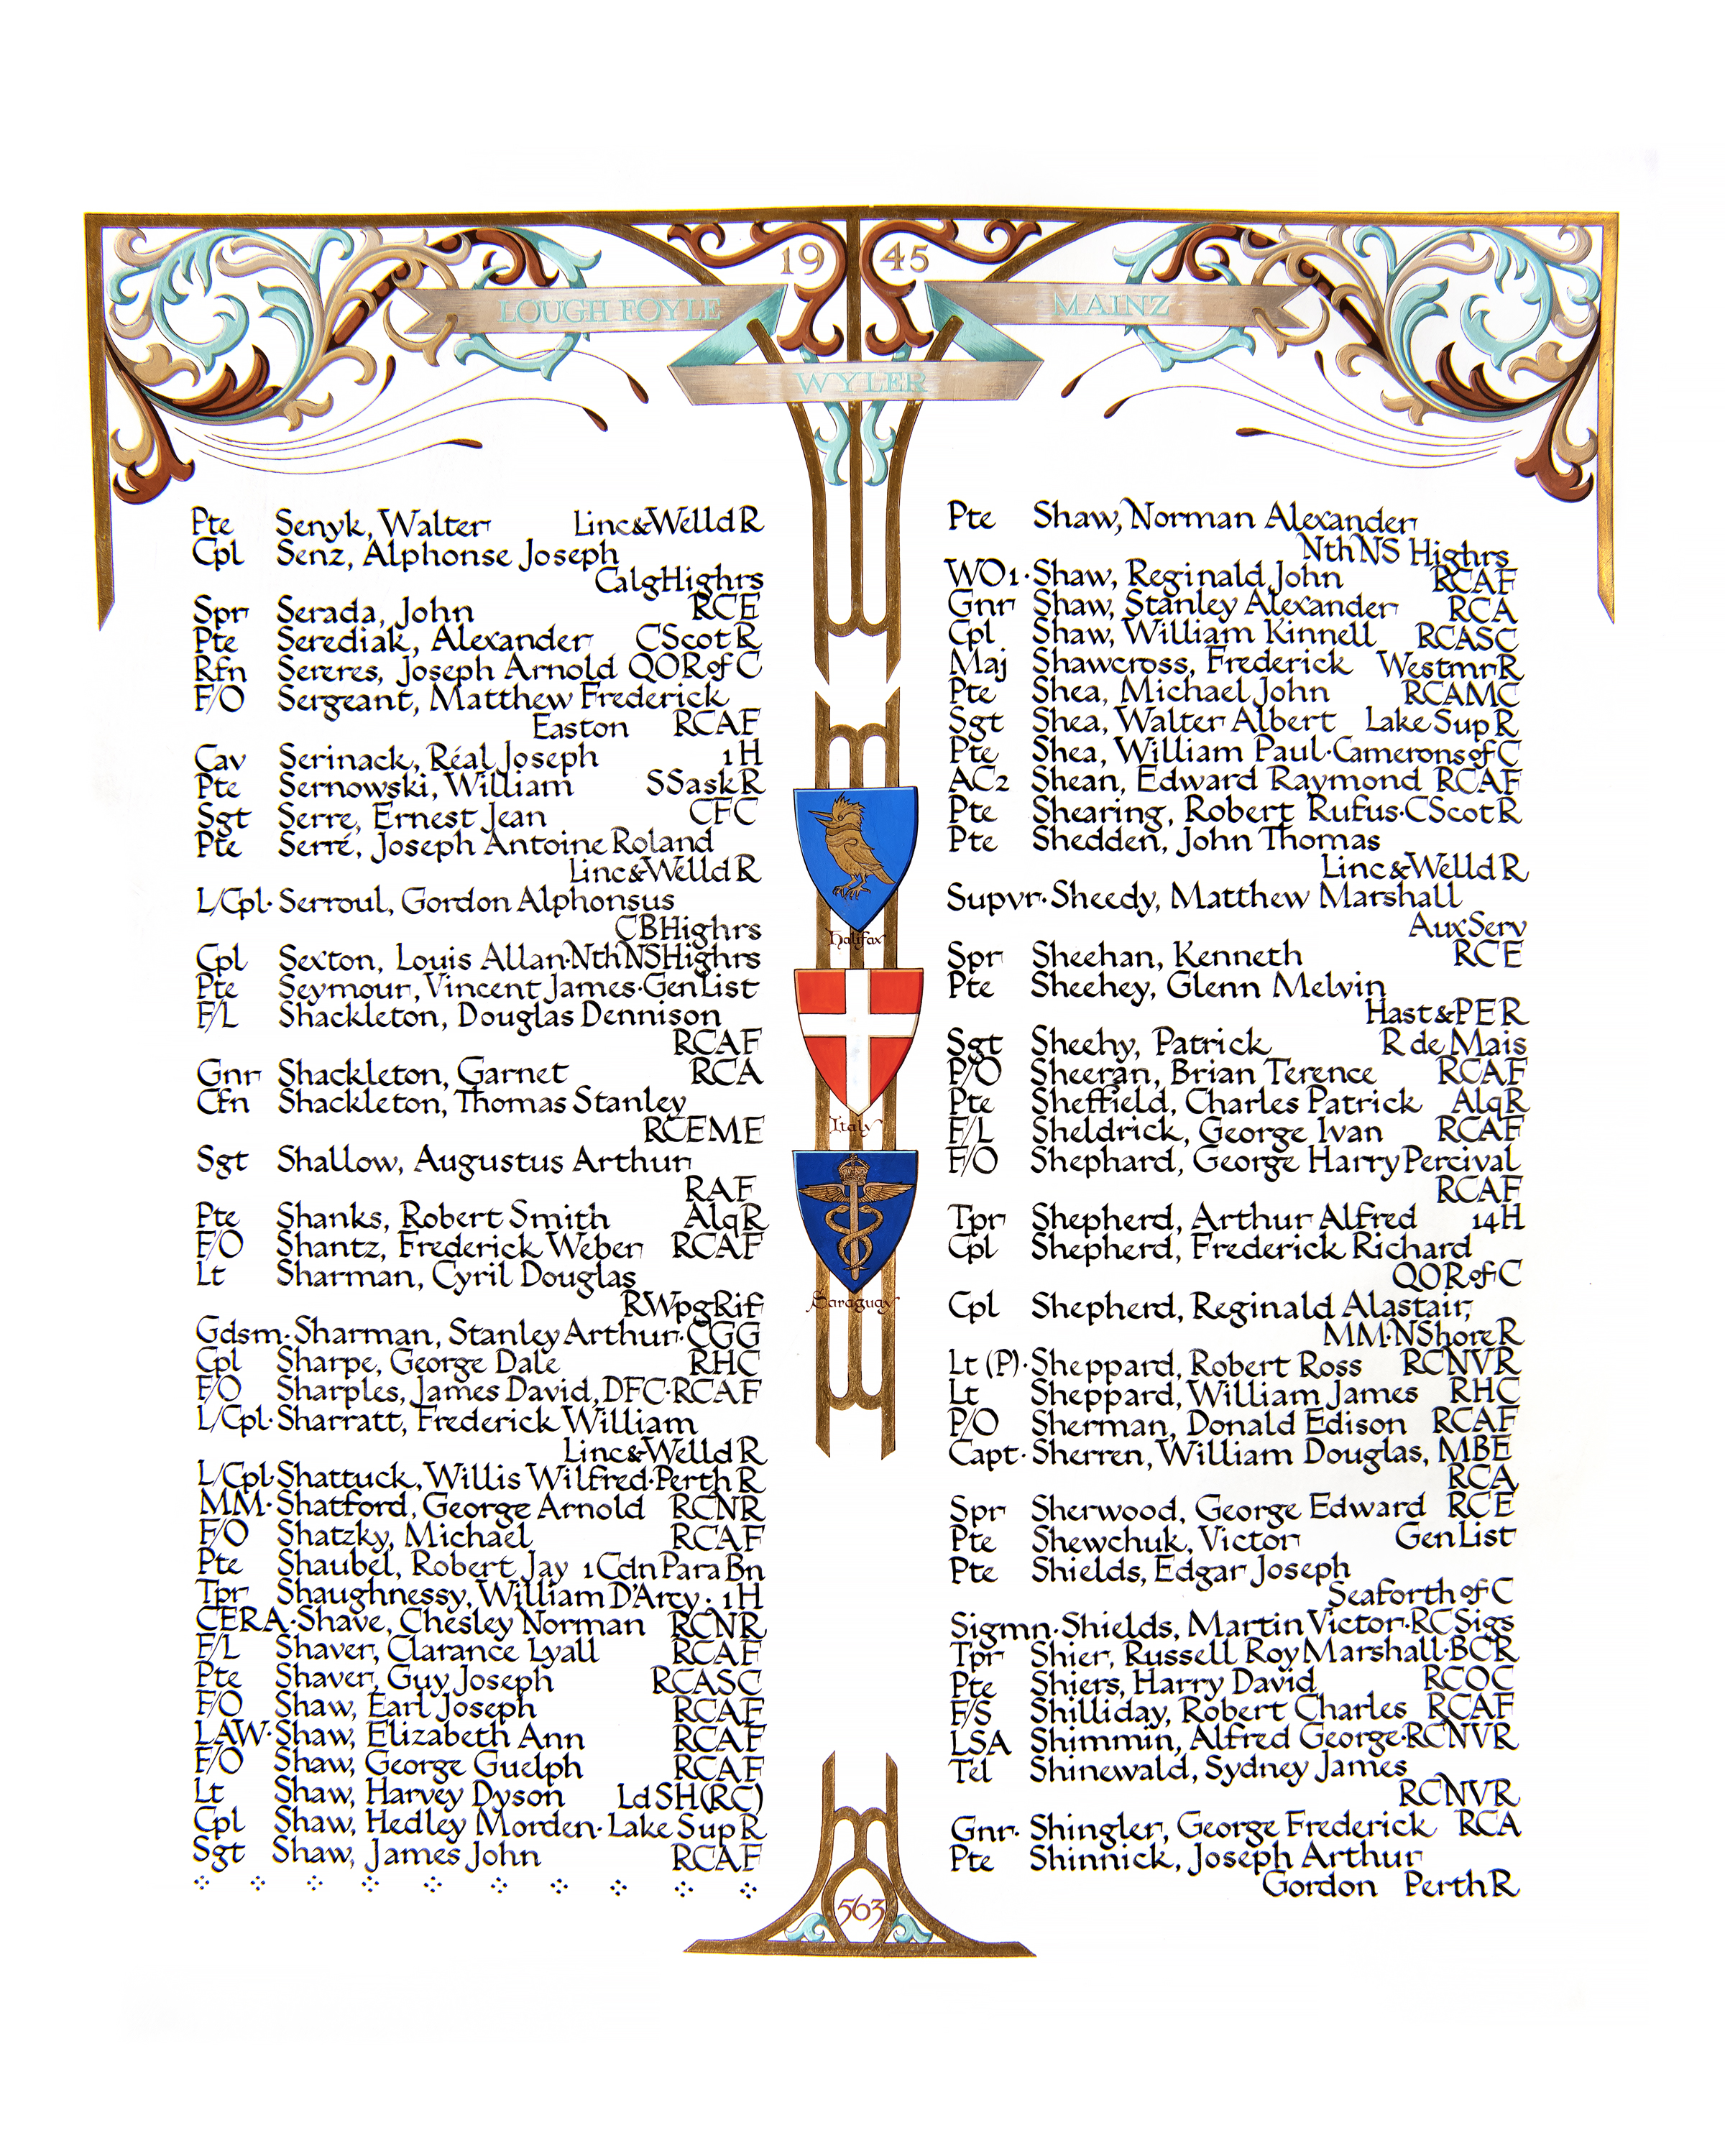 19 45
LOUGH FOYLE
MAINZ
WYLER
Pte Senyk, Walter Linc&WelldR
Cpl Senz, Alphonse Joseph
CalgHighrs
Spr Serada, John RCE
Pte Serediak, Alexander CScotR
Rfn Sereres, Joseph Arnold QORofC
F/O Sergeant, Matthew Frederick
Easton RCAF
Cav Serinack, Réal Joseph 1H
Pte Sernowski, William SSaskR
Sgt Serre, Ernest Jean CFC
Pte Serré, Joseph Antoine Roland
Linc&WelldR
L/Cpl· Serroul, Gordon Alphonsus
CBHighrs
Cpl Sexton, Louis Allan·NthNSHighrs
Pte Seymour, Vincent James·GenList
F/L Shackleton, Douglas Dennison
RCAF
Gnr Shackleton, Garnet RCA
Cfn Shackleton, Thomas Stanley
RCEME
Sgt Shallow, Augustus Arthur
RAF
Pte Shanks, Robert Smith AlqR
F/O Shantz, Frederick Weber RCAF
Lt Sharman, Cyril Douglas
RWpgRif
Gdsm·Sharman, Stanley Arthur·CGG
Cpl Sharpe, George Dale RHC
F/O Sharples, James David, DFC·RCAF
L/Cpl·Sharratt, Frederick William
Linc&WelldR
L/Cpl·Shattuck, Willis Wilfred·PerthR
MM·Shatford, George Arnold RCNR
F/O Shatzky, Michael RCAF
Pte Shaubel, Robert Jay 1CdnParaBn
Tpr Shaughnessy, William D'Arcy·1H
CERA·Shave, Chesley Norman RCNR
F/L Shaver, Clarance Lyall RCAF
Pte Shaver, Guy Joseph RCASC
F/O Shaw, Earl Joseph RCAF
LAW·Shaw, Elizabeth Ann RCAF
F/O Shaw, George Guelph RCAF
Lt Shaw, Harvey Dyson LdSH(RC)
Cpl Shaw, Hedley Morden·LakeSupR
Sgt Shaw, James John RCAF
Halifax
Italy
Saraguay
Pte Shaw, Norman Alexander
NthNS Highrs
WO1·Shaw, Reginald John RCAF
Gnr Shaw, Stanley Alexander RCA
Cpl Shaw, William Kinnell RCASC
Maj Shawcross, Frederick WestmrR
Pte Shea, Michael John RCAMC
Sgt Shea, Walter Albert LakeSupR
Pte Shea, William Paul·CameronsofC
AC2 Shean, Edward Raymond RCAF
Pte Shearing, Robert Rufus·CScotR
Pte Shedden, John Thomas
Linc&WelldR
Supvr·Sheedy, Matthew Marshall
AuxServ
Spr Sheehan, Kenneth RCE
Pte Sheehey, Glenn Melvin
Hast&PER
Sgt Sheehy, Patrick R de Mais
P/O Sheeran, Brian Terence RCAF
Pte Sheffield, Charles Patrick AlqR
F/L Sheldrick, George Ivan RCAF
F/O Shephard, George Harry Percival
RCAF
Tpr Shepherd, Arthur Alfred 14H
Cpl Shepherd, Frederick Richard
QORofC
Cpl Shepherd, Reginald Alastair,
MM·NShoreR
Lt (P)·Sheppard, Robert Ross RCNVR
Lt Sheppard, William James RHC
P/O Sherman, Donald Edison RCAF
Capt·Sherren, William Douglas, MBE
RCA
Spr Sherwood, George Edward RCE
Pte Shewchuk, Victor GenList
Pte Shields, Edgar Joseph
Seaforth of C
Sigmn·Shields, Martin Victor·RCSigs
Tpr Shier, Russell Roy Marshall·BCR
Pte Shiers, Harry David RCOC
F/S Shilliday, Robert Charles RCAF
LSA Shimmin, Alfred George·RCNVR
Tel Shinewald, Sydney James
RCNVR
Gnr· Shingler, George Frederick RCA
Pte Shinnick, Joseph Arthur
Gordon PerthR
563